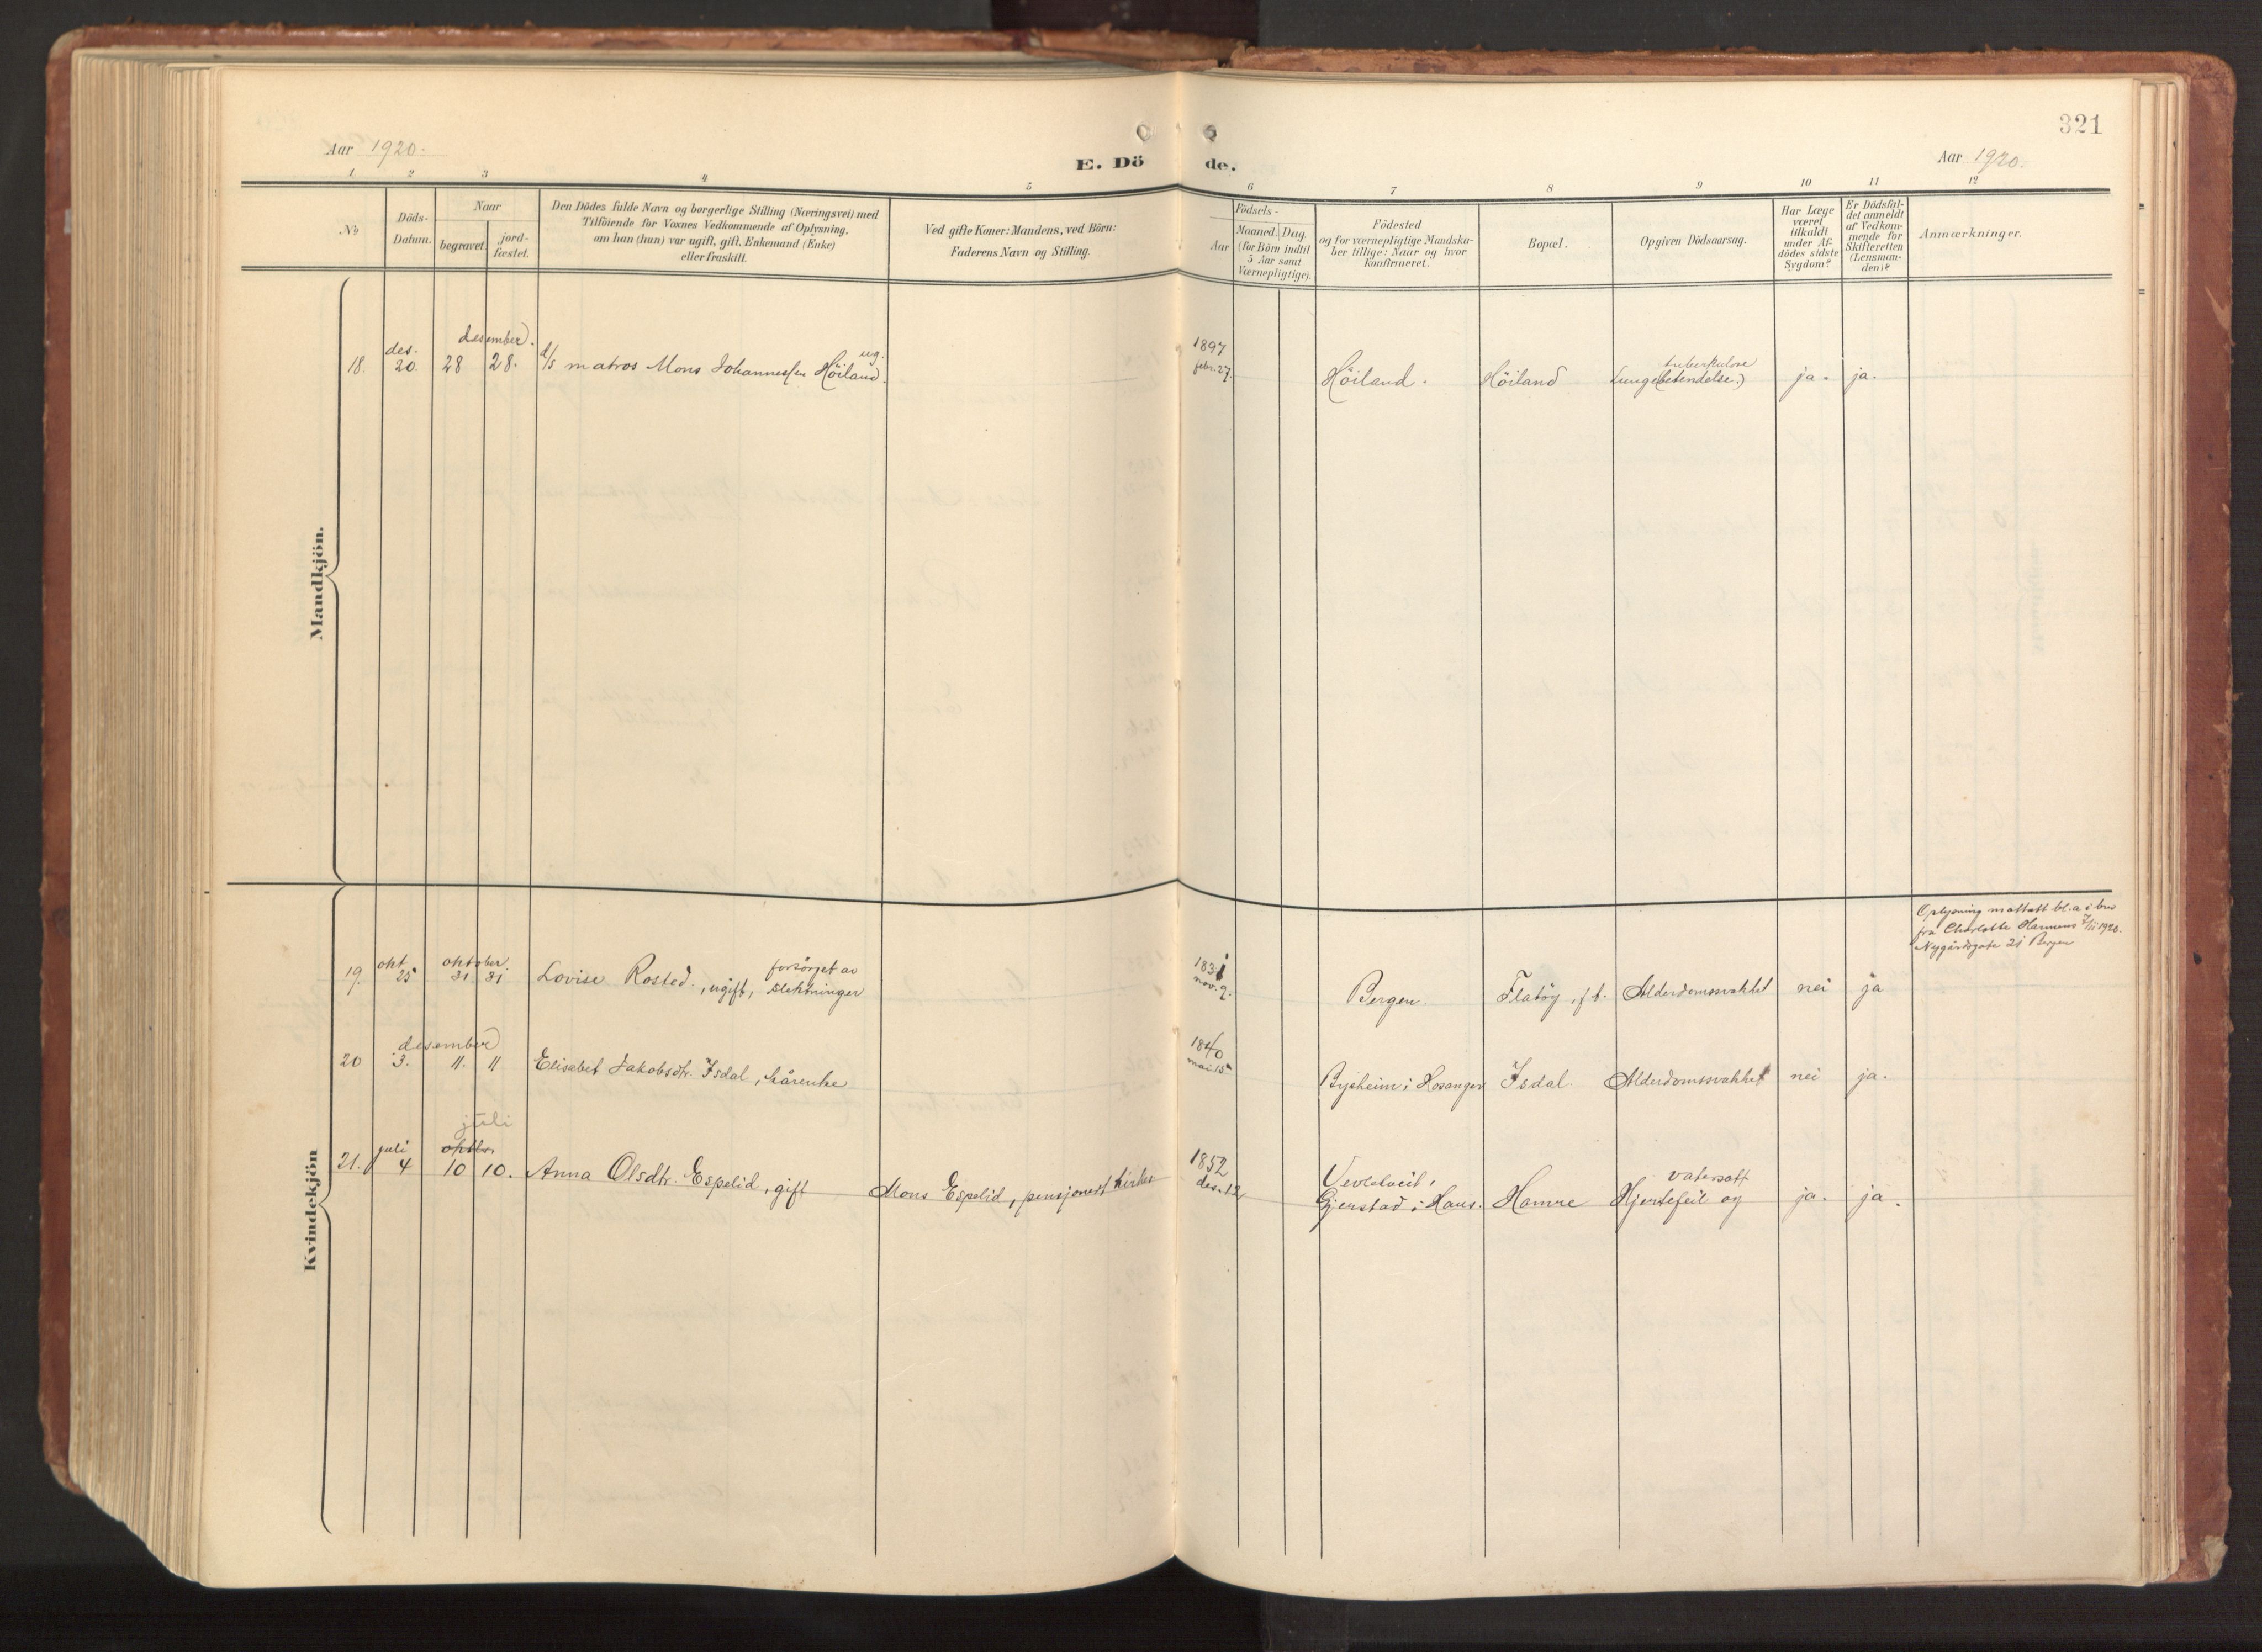 321
Aar 1920.
E. Dö
de.
Aar 1920.
1 2 3 4 5 6 7 8 9 10 11 12
No
Döds-
Datum.
Naar
begravet.
jord-
fæstet.
Den Dödes fulde Navn og borgerlige Stilling (Næringsvei) med
Tilföiende for Voxnes Vedkommende af Oplysning,
om han (hun) var ugift, gift, Enkemand (Enke)
eller fraskilt.
Ved gifte Koner: Mandens, ved Börn:
Faderens Navn og Stilling.
Födsels-
Aar
Maaned. Dag.
(for Börn indtil
5 Aar samt
Værnepligtige).
Födested
og for værnepligtige Mandska-
ber tillige: Naar og hvor
konfirmeret.
Bopæl.
Opgiven Dödsaarsag.
Har Læge
været
tilkaldt
under Af-
dödes sidste
Sygdom?
Er Dödsfal-
det anmeldt
af Vedkom-
mende for
Skifteretten
(Lensman-
den)?
Anmærkninger.
Mandkjön.
des. desember. ug. 1897 tuberkulose
18. 20. 28 28. d/s matros Mons Johannessen Höiland. febr. 27. Höiland. Höiland Lunge(betendelse.) ja. ja.
Kvindekjön
Oplysning mottatt bl.a i brev
fra Charlotte Hammens 7/11 1920.
Nygårdsgate 21 Bergen
okt oktober. forsörget av 1831
19. 25 31. 31 Lovise Rosted, ugift, slektninger nov. 9. Bergen. Flatöy, f.t. Alderdomssvakhet nei ja
desember 1840
20 3. 11. 11 Elisabet Jakobsdtr. Isdal, kårenke mai 15 Bysheim i Hosanger Isdal. Alderdomssvakhet nei ja.
juli
juli oktbr. 1852 vatersott
21. 4 10 10. Anna Olsdtr. Espelid, gift Mons Espelid, pensjonert kirkes des. 12 Gjerstad i Haus. Hamre Hjertefeil og ja. ja.